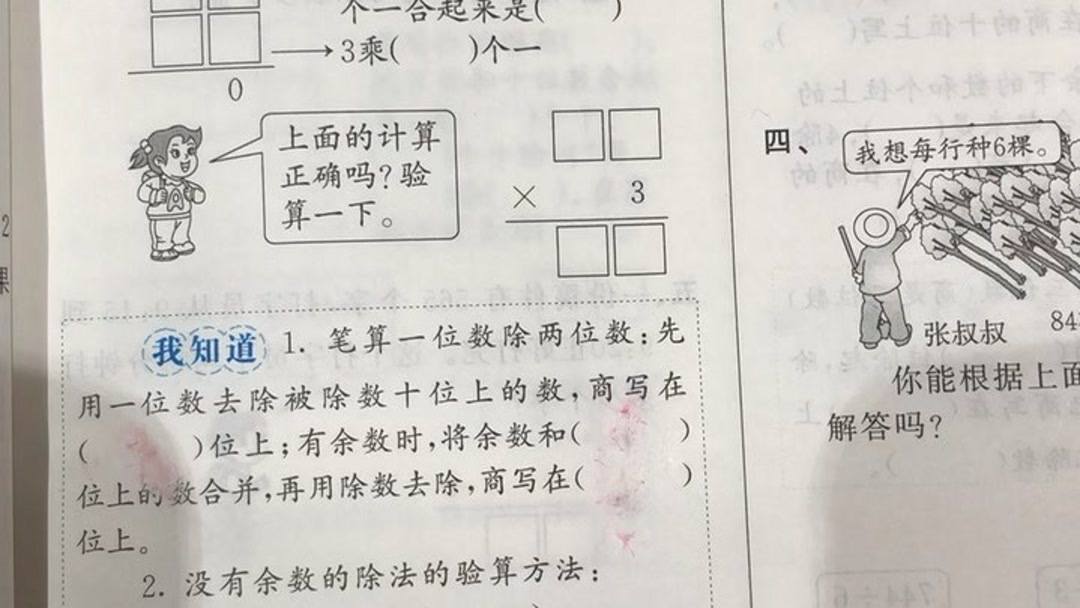 个一合起来是(    )
3乘(    )个一
0
上面的计算
正确吗?验
算一下。
× 3
我知道 1. 笔算一位数除两位数:先
用一位数去除被除数十位上的数,商写在
(    )位上;有余数时,将余数和(    )
位上的数合并,再用除数去除,商写在(    )
位上。
2. 没有余数的除法的验算方法:
四、
我想每行种6棵。
张叔叔
84
你能根据上面
解答吗?